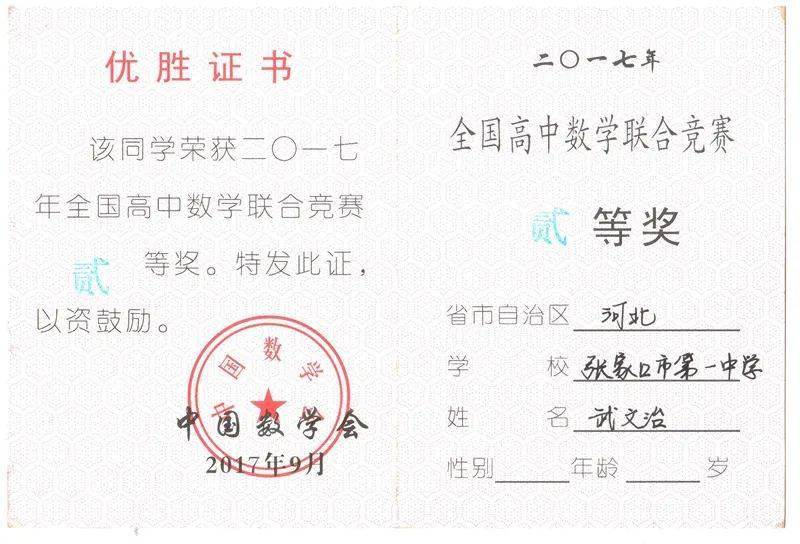 优胜证书
该同学荣获二〇一七
年全国高中数学联合竞赛
贰 等奖。特发此证，
以资鼓励。
中国数学会
中国数学会
2017年9月
二〇一七年
全国高中数学联合竞赛
贰 等奖
省市自治区 河北
学校 张家口市第一中学
姓名 武文治
性别 年龄 岁